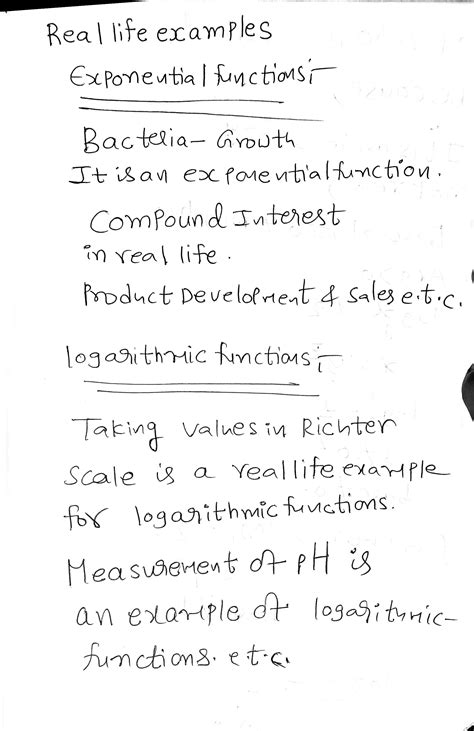 Real life examples
Exponential functions:-
Bacteria - Growth
It is an exponential function.
Compound Interest
in real life.
Product Development & Sales e.t.c.
logarithmic functions:-
Taking values in Richter
Scale is a real life example
for logarithmic functions.
Measurement of pH is
an example of logarithmic-
functions. e.t.c.